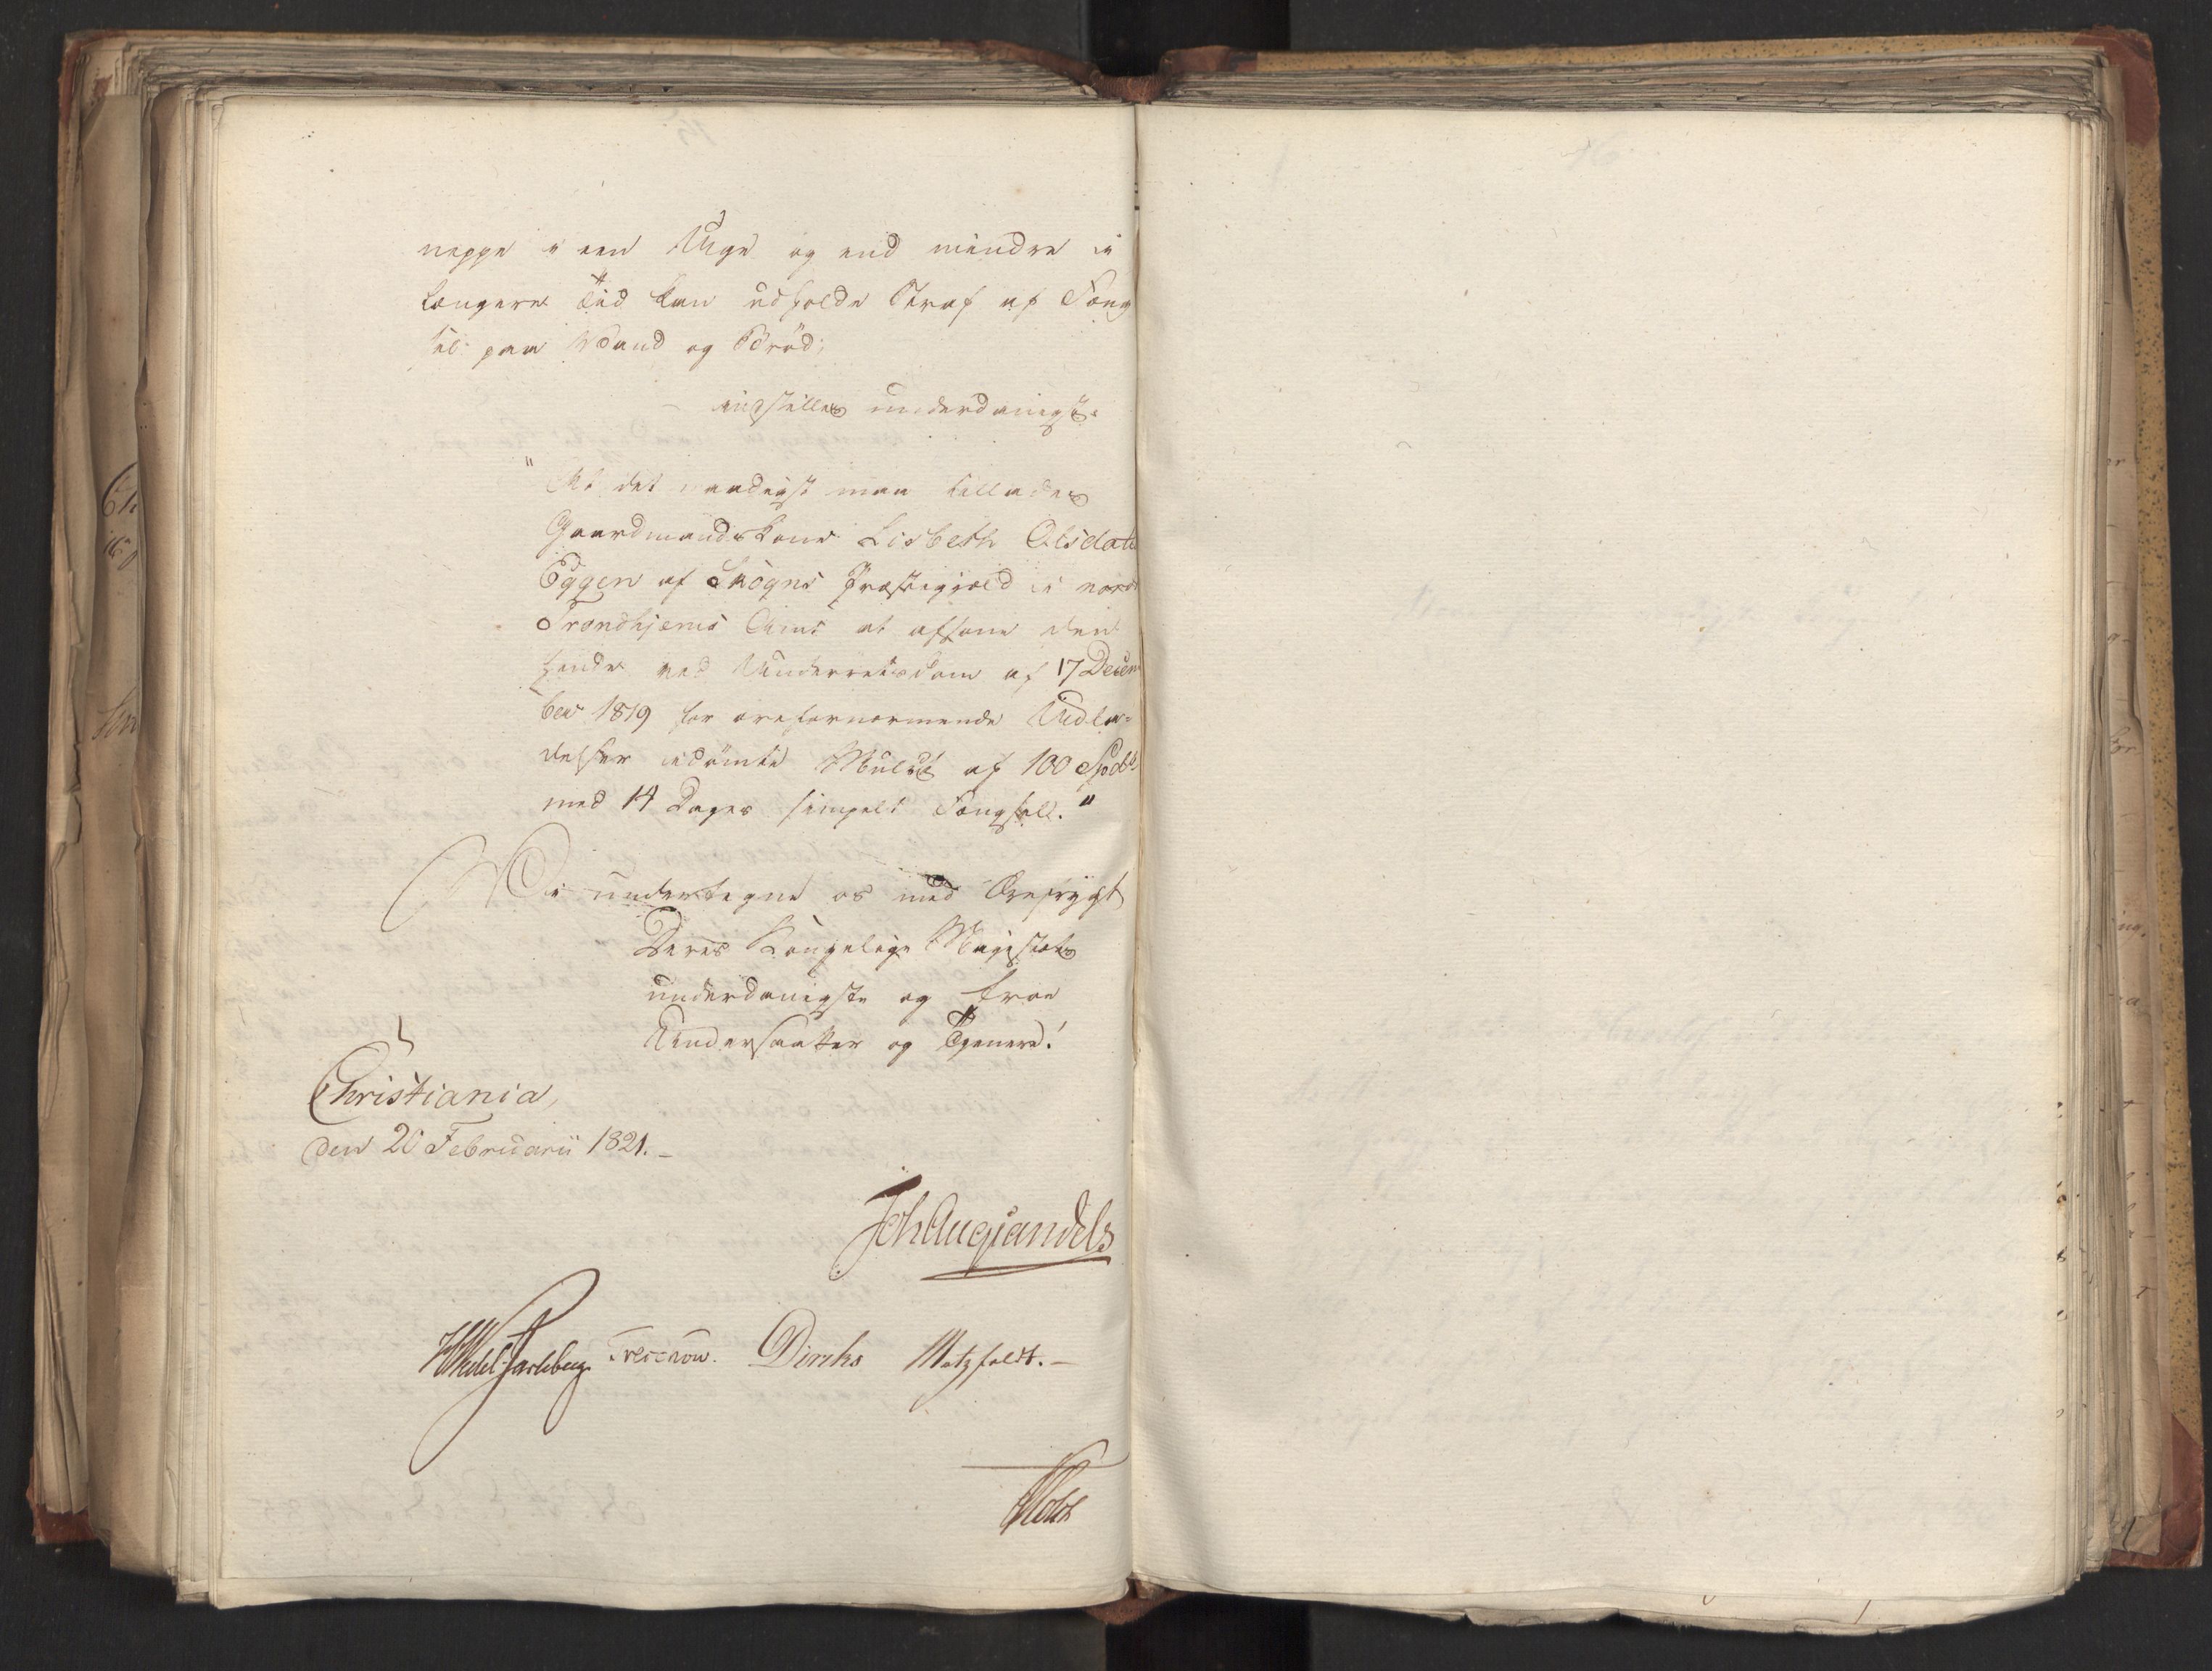 neppe i een Uge og end mindre i
længere Tid kan udholde Straf af Fæng
sel paa Vand og Bröd;
indstilles underdanigst.
"At det naadigst maa tillades
Gaardmandskone Lisbeth Olsdatter
Eggen af Skogns Præstegjæld i nordre
Trondhjems Amt at afsone den
hende ved Underretsdom af 17 Decem
ber 1819 for ærefornærmende Udla-
delser idömte Mulct af 100 Spdlr
med 14 Dages simpelt Fængsel."
Vi undertegne os med Ærefrygt
Deres Kongelige Majestæts
underdanigste og troe
Undersaatter og Tjenere!
Christiania,
den 20 Februarii 1821.
Joh Aug Sandels
HWedel Jarlsberg Treschow. Diriks Motzfeldt.
Holst